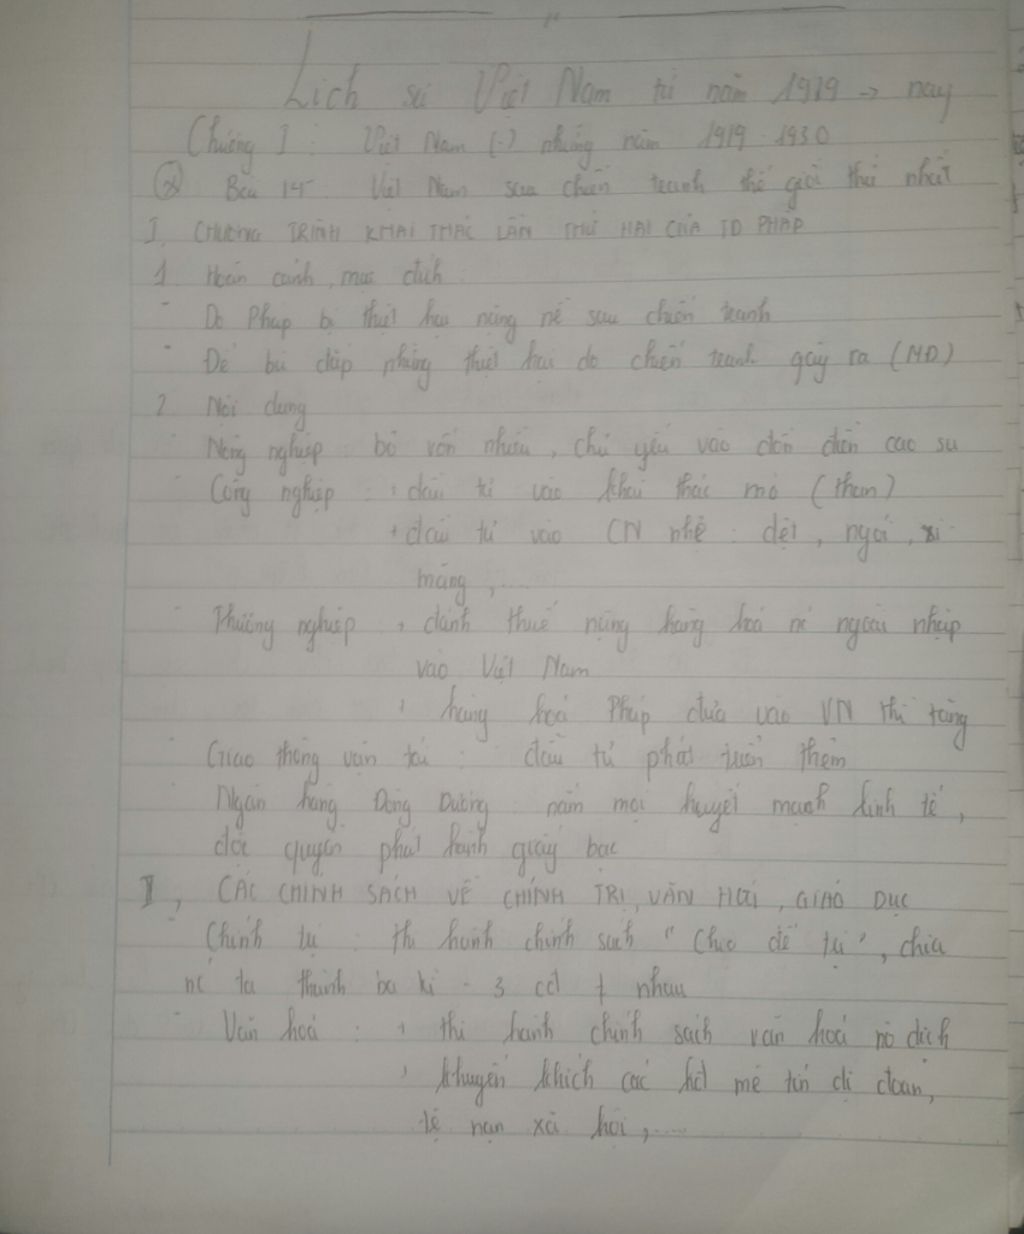 Lịch sử Việt Nam từ năm 1919 → nay
Chương I : Việt Nam (-) những năm 1919 - 1930
Bài 14 Việt Nam sau chiến tranh thế giới thứ nhất
I. CHƯƠNG TRÌNH KHAI THÁC LẦN THỨ HAI CỦA TD PHÁP
1. Hoàn cảnh, mục đích :
- Do Pháp bị thiệt hại nặng nề sau chiến tranh
- Để bù đắp những thiệt hại do chiến tranh gây ra (MĐ)
2. Nội dung
- Nông nghiệp : bỏ vốn nhiều, chủ yếu vào đồn điền cao su
- Công nghiệp : + đầu tư vào khai thác mỏ (than)
+ đầu tư vào CN nhẹ : dệt, ngói, xi
măng, ....
- Thương nghiệp : + đánh thuế nặng hàng hoá nc ngoài nhập
vào Việt Nam
+ hàng hoá Pháp đưa vào VN thì tăng
- Giao thông vận tải : đầu tư phát triển thêm
- Ngân hàng Đông Dương : nắm mọi huyết mạch kinh tế,
độc quyền phát hành giấy bạc
II, CÁC CHÍNH SÁCH VỀ CHÍNH TRỊ, VĂN HOÁ, GIÁO DỤC
- Chính trị : thi hành chính sách "Chia để trị", chia
nc ta thành ba kì - 3 cđ ≠ nhau
- Văn hoá : + thi hành chính sách văn hoá nô dịch
+ khuyến khích các hđ mê tín dị đoan,
tệ nạn xã hội, .....